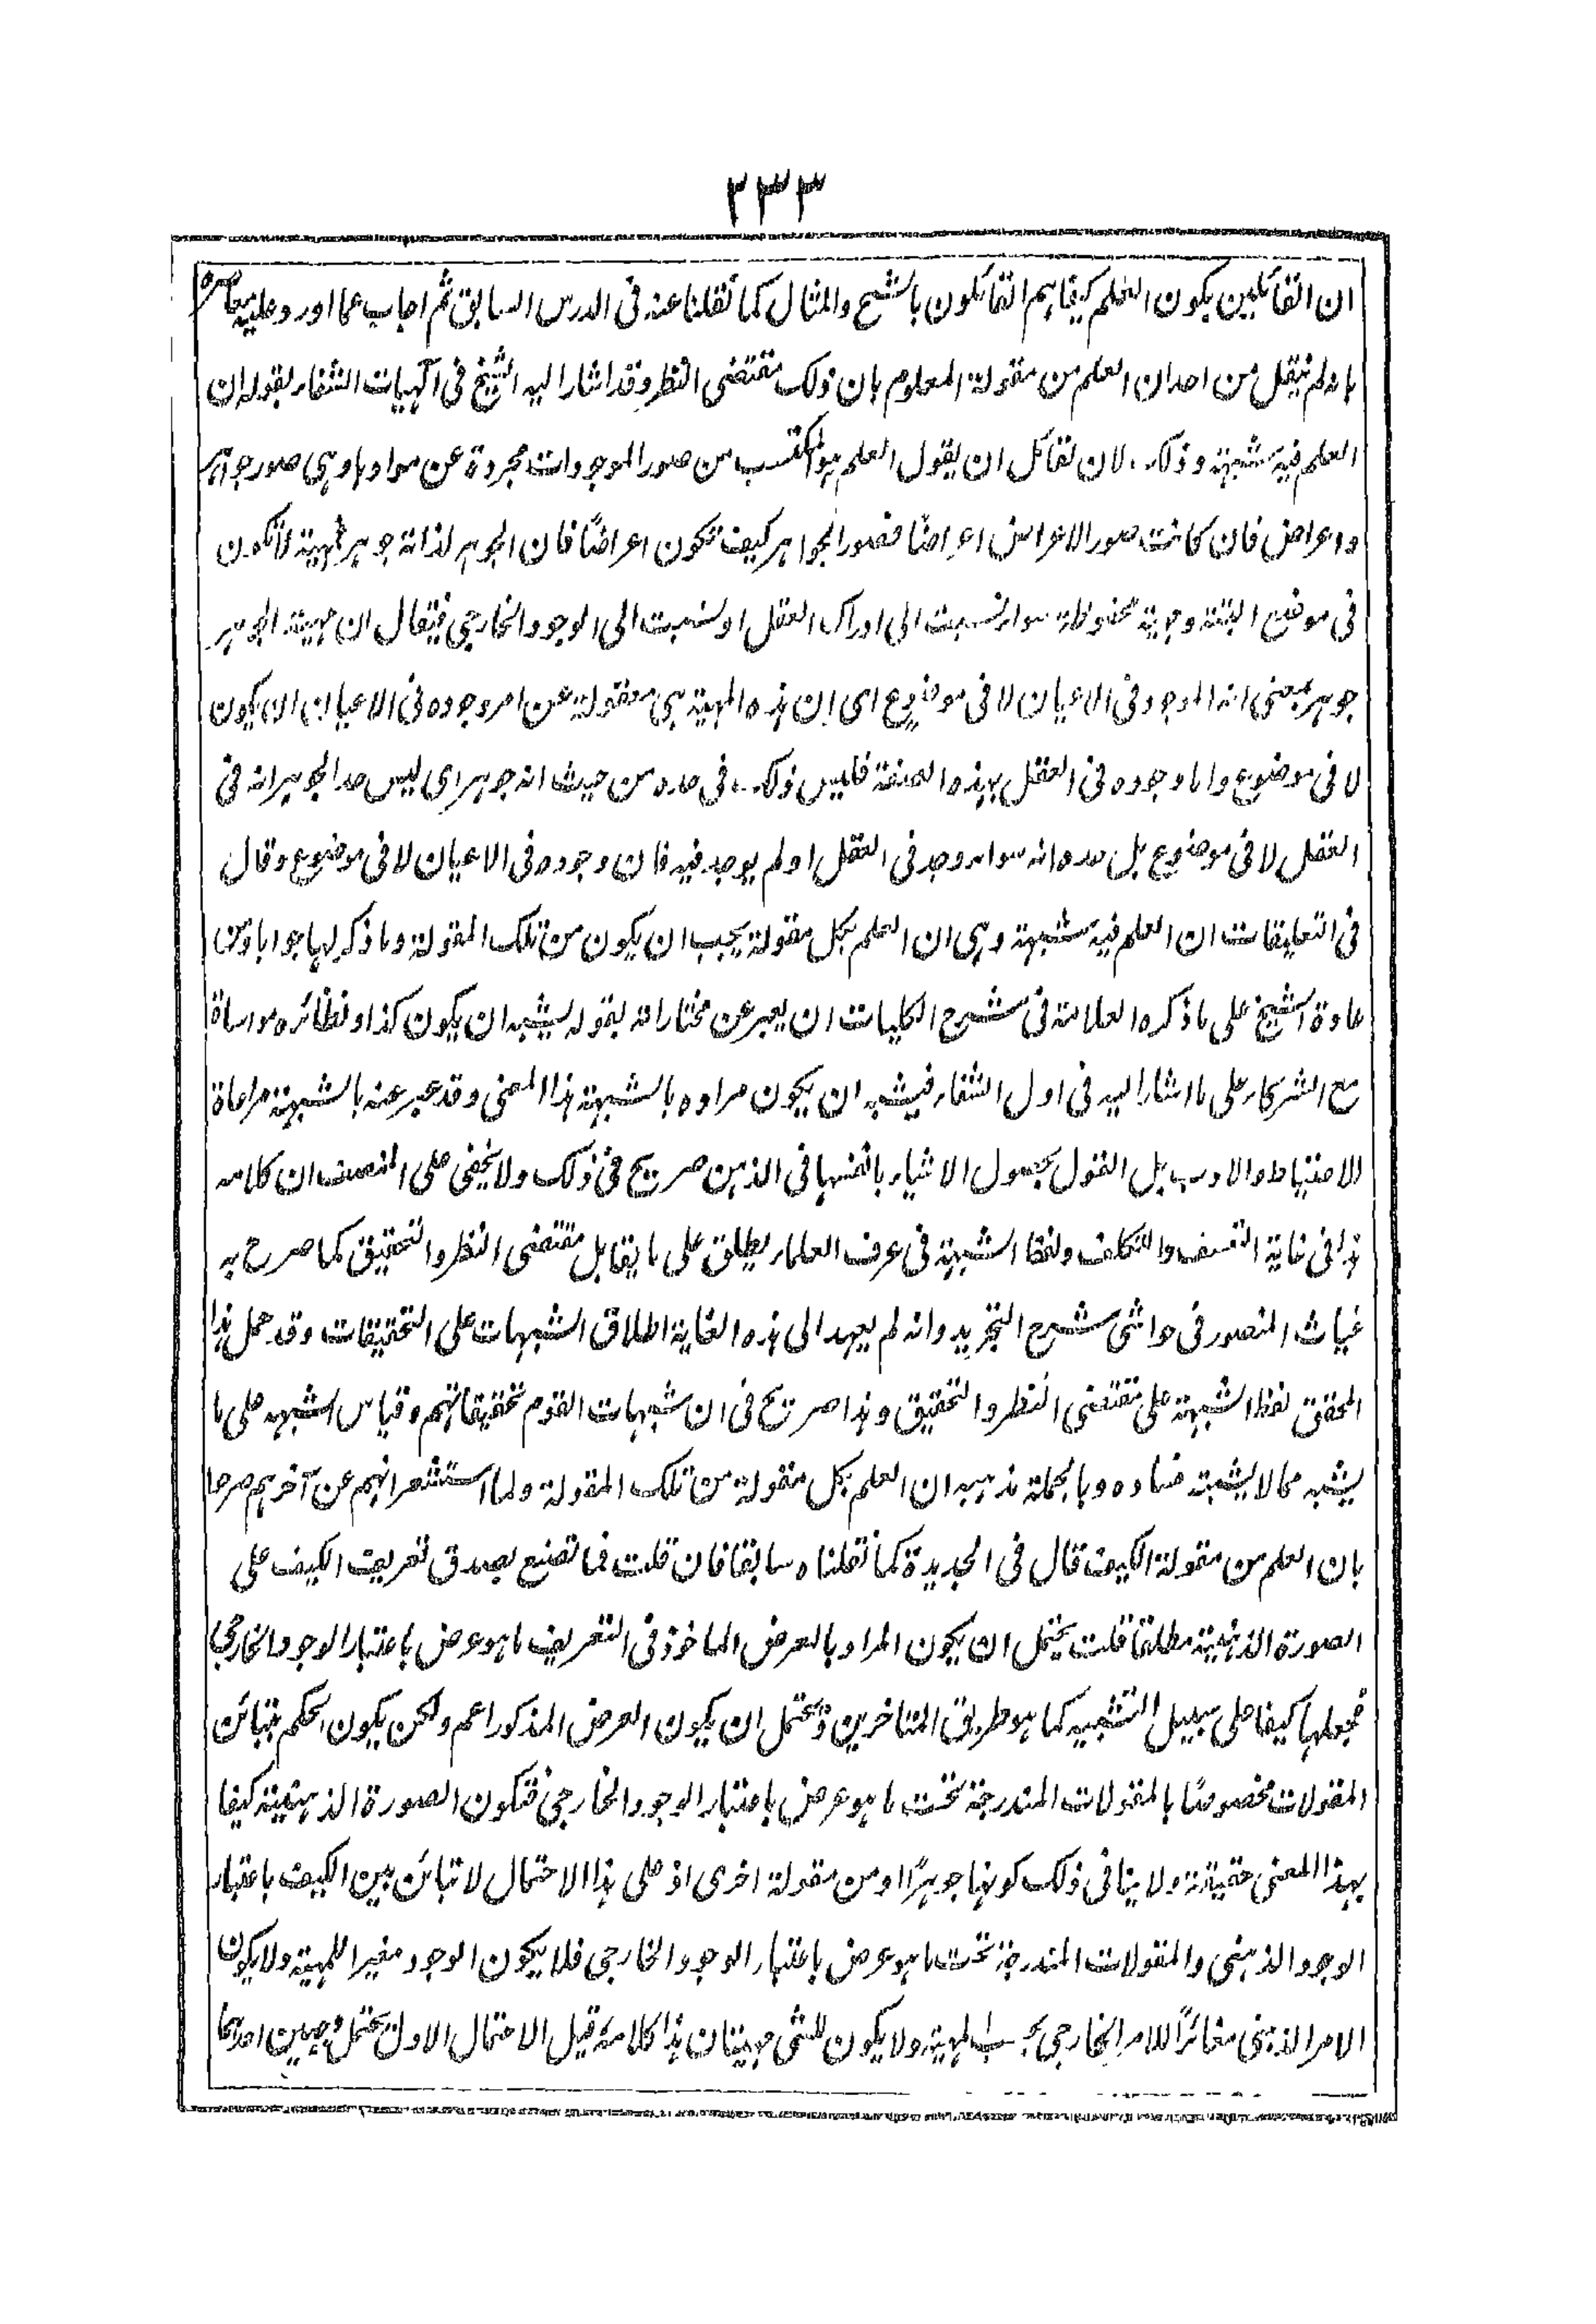 ٢٣٣
ان القائلين بكون العلم كيفا هم القائلون بالشبح والمثال كما نقلنا عنه فى الدرس السابق ثم اجاب عما اورد عليه معاصره
بانه لم ينقل من احد ان العلم من مقولة المعلوم بان ذلك مقتضى النظر وقد اشار اليه الشيخ فى آلهيات الشفاء بقوله ان
العلم فيه شبهة وذلك لان لقائل ان يقول العلم هو المكتسب من صور الموجودات مجردة عن موادها وهى صور جواهر
واعراض فان كانت صور الاعراض اعراضًا فصور الجواهر كيف تكون اعراضًا فان الجوهر لذاته جوهر فمهيته لا تكون
فى موضوع البتة ومهيته محفوظة سواء نسبت الى ادراك العقل او نسبت الى الوجود الخارجى فيقال ان مهية الجوهر
جوهر بمعنى انه الموجود فى الاعيان لا فى موضوع اى ان هذه المهية هى معقولة عن امر وجوده فى الاعيان ان يكون
لا فى موضوع واما وجوده فى العقل بهذه الصفة فليس ذلك فى حده من حيث انه جوهر اى ليس حد الجوهر انه فى
العقل لا فى موضوع بل حده انه سواء وجد فى العقل او لم يوجد فيه فان وجوده فى الاعيان لا فى موضوع وقال
فى التعليقات ان العلم فيه شبهة وهى ان العلم بكل مقولة يجب ان يكون من تلك المقولة وما ذكر لها جوابا ومن
عادة الشيخ على ما ذكره العلامة فى شرح الكليات ان يعبر عن مختاراته بقوله يشبه ان يكون كذا ونظائره مواساة
مع الشركاء على ما اشار اليه فى اول الشفاء فيشبه ان يكون مراده بالشبهة هذا المعنى وقد عبر عنه بالشبهة مراعاة
الاحتياط والادب بل القول بحصول الاشياء بانفسها فى الذهن صريح فى ذلك ولا يخفى على المنصف ان كلامه
هذا فى غاية التعسف والتكلف ولفظ الشبهة فى عرف العلماء يطلق على ما يقابل مقتضى النظر والتحقيق كما صرح به
غياث المنصور فى حواشى شرح التجريد وانه لم يعهد الى هذه الغاية اطلاق الشبهات على التحقيقات وقد حمل هذا
المحقق لفظ الشبهة على مقتضى النظر والتحقيق وهذا صريح فى ان شبهات القوم تحقيقاتهم وقياس الشبهه على ما
يشبه مما لا يشبته فساده وبالجملة مذهبه ان العلم بكل مقولة من تلك المقولة ولما استشعر انهم عن آخرهم صرحا
بان العلم من مقولة الكيف قال فى الجديدة كما نقلناه سابقا فان قلت فما تصنع بصدق تعريف الكيف على
الصورة الذهنية مطلقا قلت يحتمل ان يكون المراد بالعرض الماخوذ فى التعريف ما هو عرض باعتبار الوجود الخارجى
فجعلها كيفا على سبيل التشبيه كما هو طريق المتاخرين ويحتمل ان يكون العرض المذكور اعم ولكن يكون الحكم بتبائن
المقولات مخصوصًا بالمقولات المندرجة تحت ما هو عرض باعتبار الوجود الخارجى فتكون الصورة الذهنية كيفا
بهذا المعنى حقيقة ولا ينافى ذلك كونها جوهرًا او من مقولة اخرى اذ على هذا الاحتمال لا تبائن بين الكيف باعتبار
الوجود الذهنى والمقولات المندرجة تحت ما هو عرض باعتبار الوجود الخارجى فلا يكون الوجود مغيرا للمهية ولا يكون
الامر الذهنى مغائرًا للامر الخارجى بحسب المهية ولا يكون للشى مهيتان هذا كلامه قيل الاحتمال الاول يحتمل وجهين احدهما